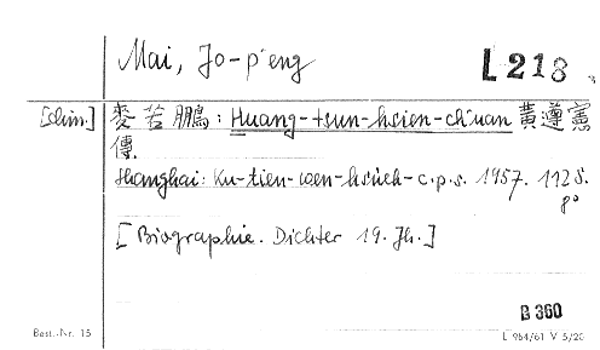 Mai, Jo-p'eng
L 218
[chin.] 麥若鵬: Huang-tsun-hsien-chuan 黃遵憲
傳.
Shanghai: Ku-tien-wen-hsüeh-c.p.s. 1957. 112 S.
8°
[Biographie. Dichter 19. Jh.]
B 360
Best.-Nr. 15
L 964/61 V 5/20